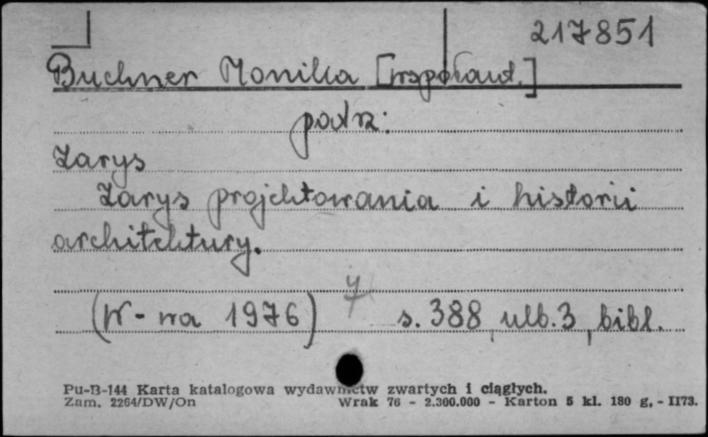 217851
Buchner Monika [współaut.]
patrz:
Zarys
Zarys projektowania i historii
architektury.
(W-wa 1976) y s. 388, ulb. 3, bibl.
Pu-B-144 Karta katalogowa wydawnictw zwartych i ciągłych.
Zam. 2264/DW/On Wrak 76 - 2.300.000 - Karton 5 kl. 180 g. - II73.